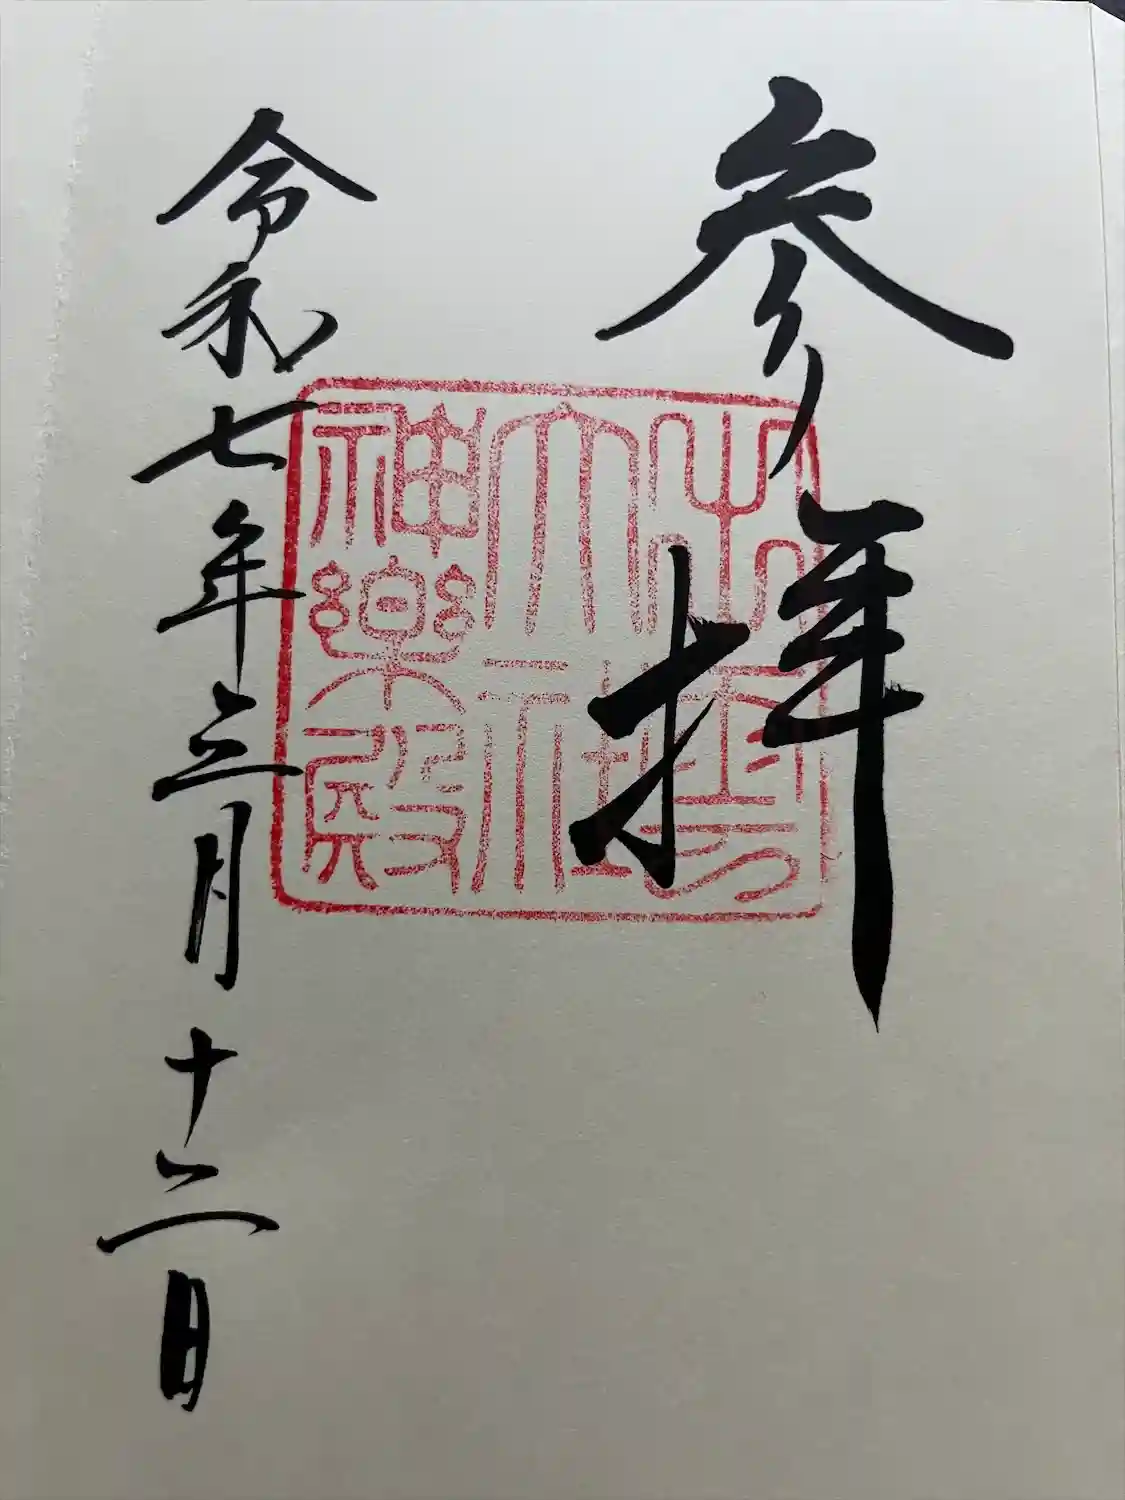 参拝
出雲
大社
神楽殿
令和七年三月十二日